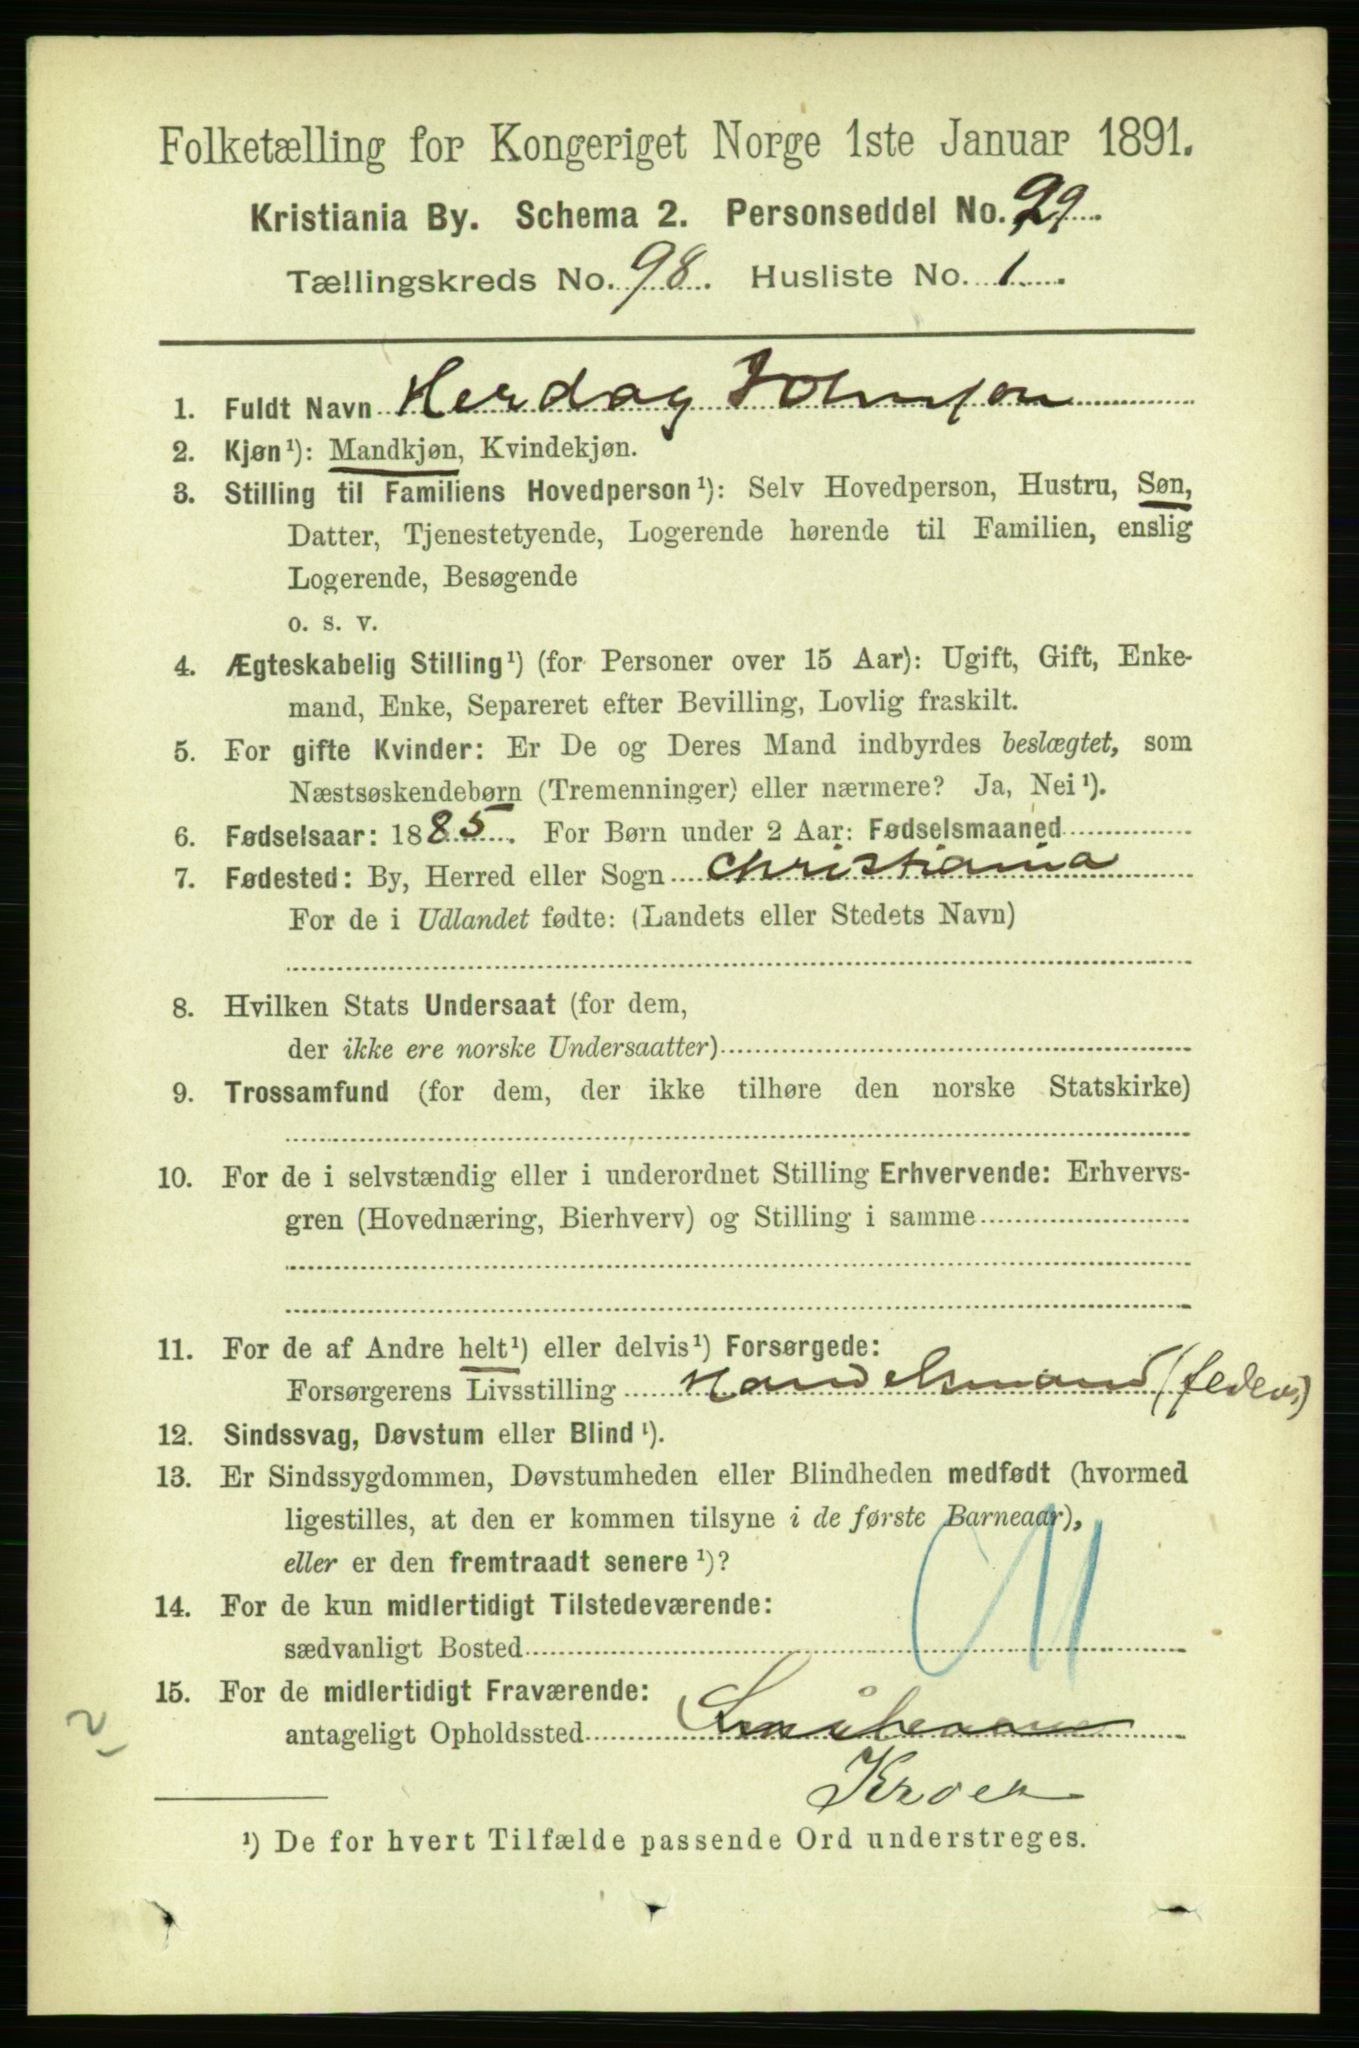 Folketælling for Kongeriget Norge 1ste Januar 1891.
Kristiania By. Schema 2. Personseddel No. 29.
Tællingskreds No. 98. Husliste No. 1.
1. Fuldt Navn Herdag Johnson
2. Kjøn¹): Mandkjøn, Kvindekjøn.
3. Stilling til Familiens Hovedperson¹): Selv Hovedperson, Hustru, Søn,
Datter, Tjenestetyende, Logerende hørende til Familien, enslig
Logerende, Besøgende
o. s. v.
4. Ægteskabelig Stilling¹) (for Personer over 15 Aar): Ugift, Gift, Enke-
mand, Enke, Separeret efter Bevilling, Lovlig fraskilt.
5. For gifte Kvinder: Er De og Deres Mand indbyrdes beslægtet, som
Næstsøskendebørn (Tremenninger) eller nærmere? Ja, Nei¹).
6. Fødselsaar: 1885. For Børn under 2 Aar: Fødselsmaaned
7. Fødested: By, Herred eller Sogn Christiania
For de i Udlandet fødte: (Landets eller Stedets Navn)
8. Hvilken Stats Undersaat (for dem,
der ikke ere norske Undersaatter)
9. Trossamfund (for dem, der ikke tilhøre den norske Statskirke)
10. For de i selvstændig eller i underordnet Stilling Erhvervende: Erhvervs-
gren (Hovednæring, Bierhverv) og Stilling i samme
11. For de af Andre helt¹) eller delvis¹) Forsørgede:
Forsørgerens Livsstilling Handelsmand (feder)
12. Sindssvag, Døvstum eller Blind¹).
13. Er Sindssygdommen, Døvstumheden eller Blindheden medfødt (hvormed
ligestilles, at den er kommen tilsyne i de første Barneaar),
eller er den fremtraadt senere¹)?
14. For de kun midlertidigt Tilstedeværende:
sædvanligt Bosted
15. For de midlertidigt Fraværende:
antageligt Opholdssted
Kroer
¹) De for hvert Tilfælde passende Ord understreges.
2